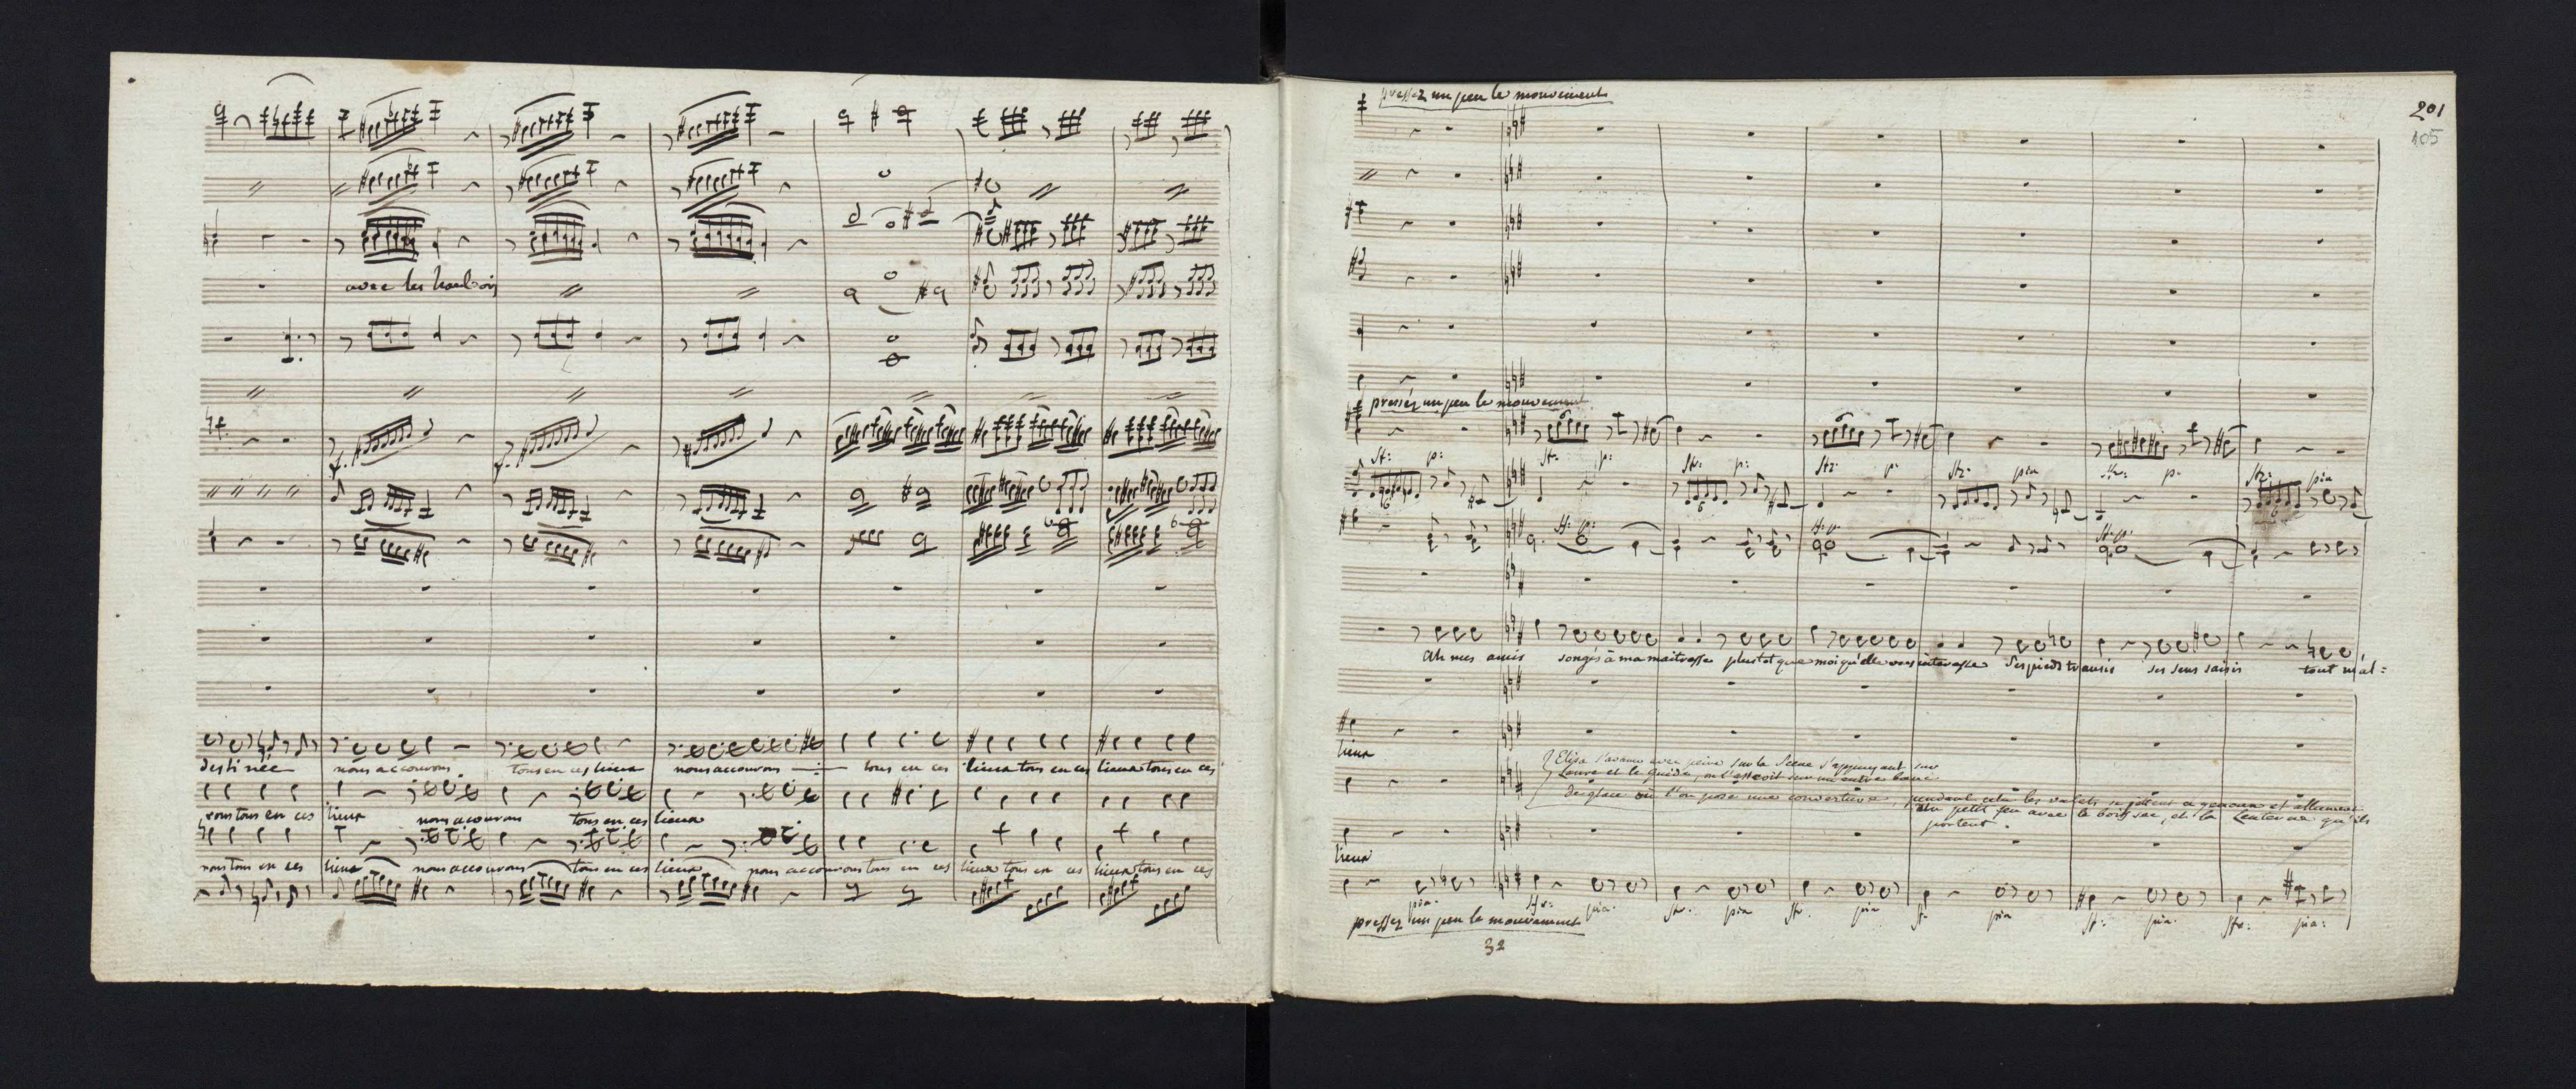 avec les hautbois
f. f.
destinée nous accourons tous en ces lieux nous accourons tous en ces lieux tous en ces lieux tous en ces
vous tous en ces lieux nous acourons tous en ces lieux
nous tous en ces lieux nous accourons tous en ces lieux nous accourons tous en ces lieux tous en ces lieux tous en ces
201
105
pressez un peu le mouvement
pressés un peu le mouvement
sf: p: sfz. p. sfz: p: sfz. p. sfz. pia sfz: p. sfz: pia
sf: p: sf. p. sf. p.
Ah mes amis songés à ma maitresse plustot que moi qu'elle vous interesse Ses pieds transis ses sens saisis tout m'al=
lieux
Elisa s'avance avec peine sur la Scene s'appuyant sur
Laure et le guide, on l'asseoit sur un autre banc
de glace où l'on pose une couverture, pendant cela les valets se jettent a genoux et allument
un petit feu avec le bois sec, et la Lanterne qu'ils
portent.
lieux
pia. sfz: pia. sfz. pia sfz. pia sf. pia sf. pia. sfz: pia:
pressez un peu le mouvement
32